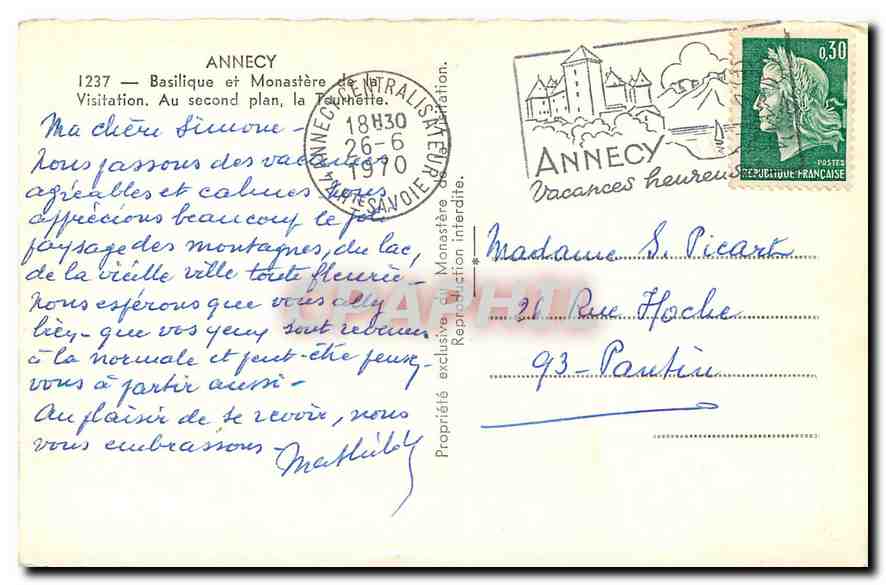 ANNECY
1237 — Basilique et Monastère de la
Visitation. Au second plan, la Tournette.
Ma chère Simone -
Nous passons des vacances
agréables et calmes. Nous
apprécions beaucoup le joli
paysage des montagnes, du lac,
de la vieille ville toute fleurie -
Nous espérons que vous allez
bien - que vos yeux sont revenus
à la normale et peut-être pensez-
vous à partir aussi -
Au plaisir de se revoir, nous
vous embrassons -
Mathilde
Propriété exclusive du Monastère de la Visitation.
Reproduction interdite.
74 ANNECY CENTRALISATEUR
18H30
26-6
1970
HTE SAVOIE
ANNECY
Vacances heureuses
0,30
POSTES
REPUBLIQUE FRANÇAISE
Madame S. Picart
26 Rue Hoche
93 - Pantin
CPAPHIL